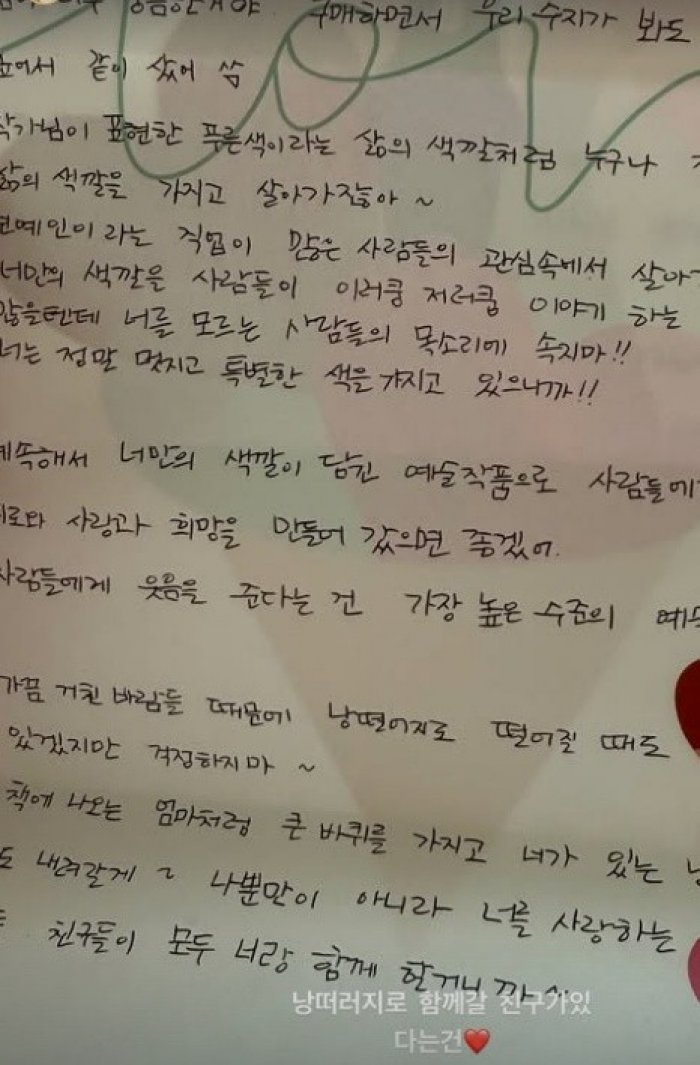 구매하면서 우리 수지가 봐도
같이 샀어 쌈
작가님이 표현한 푸른색이라는 삶의 색깔처럼 누구나
삶의 색깔을 가지고 살아가잖아 ~
연예인이라는 직업이 많은 사람들의 관심속에서 살아
너만의 색깔을 사람들이 이러쿵 저러쿵 이야기 하는
많을텐데 너를 모르는 사람들의 목소리에 속지마!!
너는 정말 멋지고 특별한 색을 갸지고 있으니까!!
계속해서 너만의 색깔이 담긴 예술작품으로 사람들에
위로와 사랑과 희망을 만들어 갔으면 좋겠어.
사람들에게 웃음을 준다는 건 가장 높은 수준의 예
가끔 거친 바람들 때문에 낭떨어지로 떨어질 때도
있겠지만 걱정하지마 ~
책에 나오는 엄마처럼 큰 바퀴를 가지고 너가 있는
도 내려갈게 ~ 나뿐만이 아니라 너를 사랑하는
친구들이 모두 너랑 함께 할거니까~
낭떠러지로 함께갈 친구가있
다는건❤️